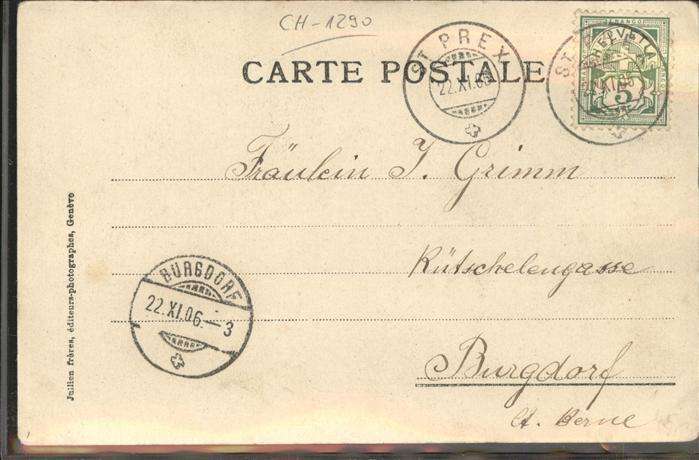 CH-1290
CARTE POSTALE
ST PREX
22.XI.06
HELVETIA
FRANCO
5
Fräulein J. Grimm
Rütschelengasse
Burgdorf
Ct. Berne
BURGDORF
22.XI.06.-3
Jullien frères, éditeurs-photographes, Genève